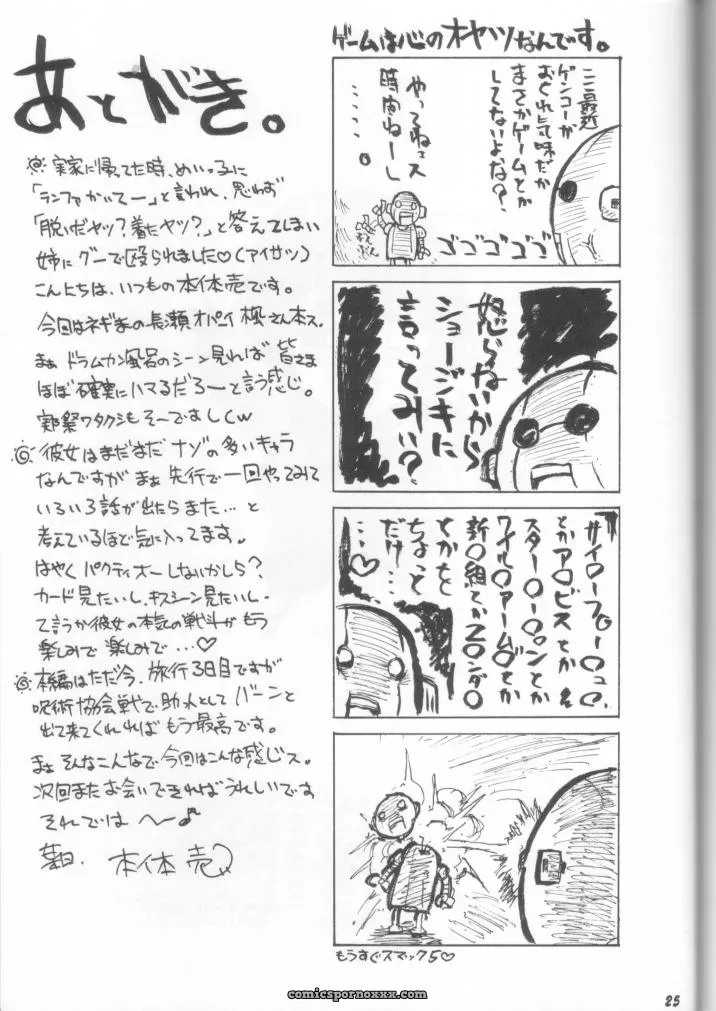 あとがき。
実家に帰ってた時、めいっ子に
「ランファかいてー」と言われ、思わず
「脱いだヤツ?着たヤツ?」と答えてしまい
姉にグーで殴られました♡(アイサツ)
こんにちは、いつもの本体売です。
今回はネギまの長瀬オパーイ楓さん本ス。
まぁ ドラムカン風呂のシーン見れば 皆さま
ほぼ確実にハマるだろーと言う感じ。
実際ワタクシもそーですしw
彼女はまだまだ ナゾの多いキャラ
なんですが まぁ 先行で一回やってみて
いろいろ話が出たらまた…と
考えているほど気に入ってます。
はやく パクティオーしないかしら?
カード見たいし、キスシーン見たいし、
て言うか彼女の本気の戦斗がもう
楽しみで楽しみで…♡
本編はただ今、旅行3日目ですが
呪術協会戦で助っ人として バーンと
出て来てくれればもう最高です。
まぁ そんなこんなで今回はこんな感じス。
次回またお会いできればうれしいです
それでは へー♪
本体売
ゲームは心のオヤツなんです。
ここ最近
ゲンコーが
おくれ気味だが
まさかゲームとか
してないよな?
やってねェス
時間ねーし
……。
ゴゴゴゴゴ
怒らないから
ショージキに
言ってみい?
サイ○ーフ○ー○ュ○、
とかア○ビスとか
スター○ー○ンとか
ワイル○アーム○とか
新○組とかZ○ンダ○
とかを
ちょっと
だけ…
…♡
もうすぐスマック5♡
comicspornoxxx.com
25